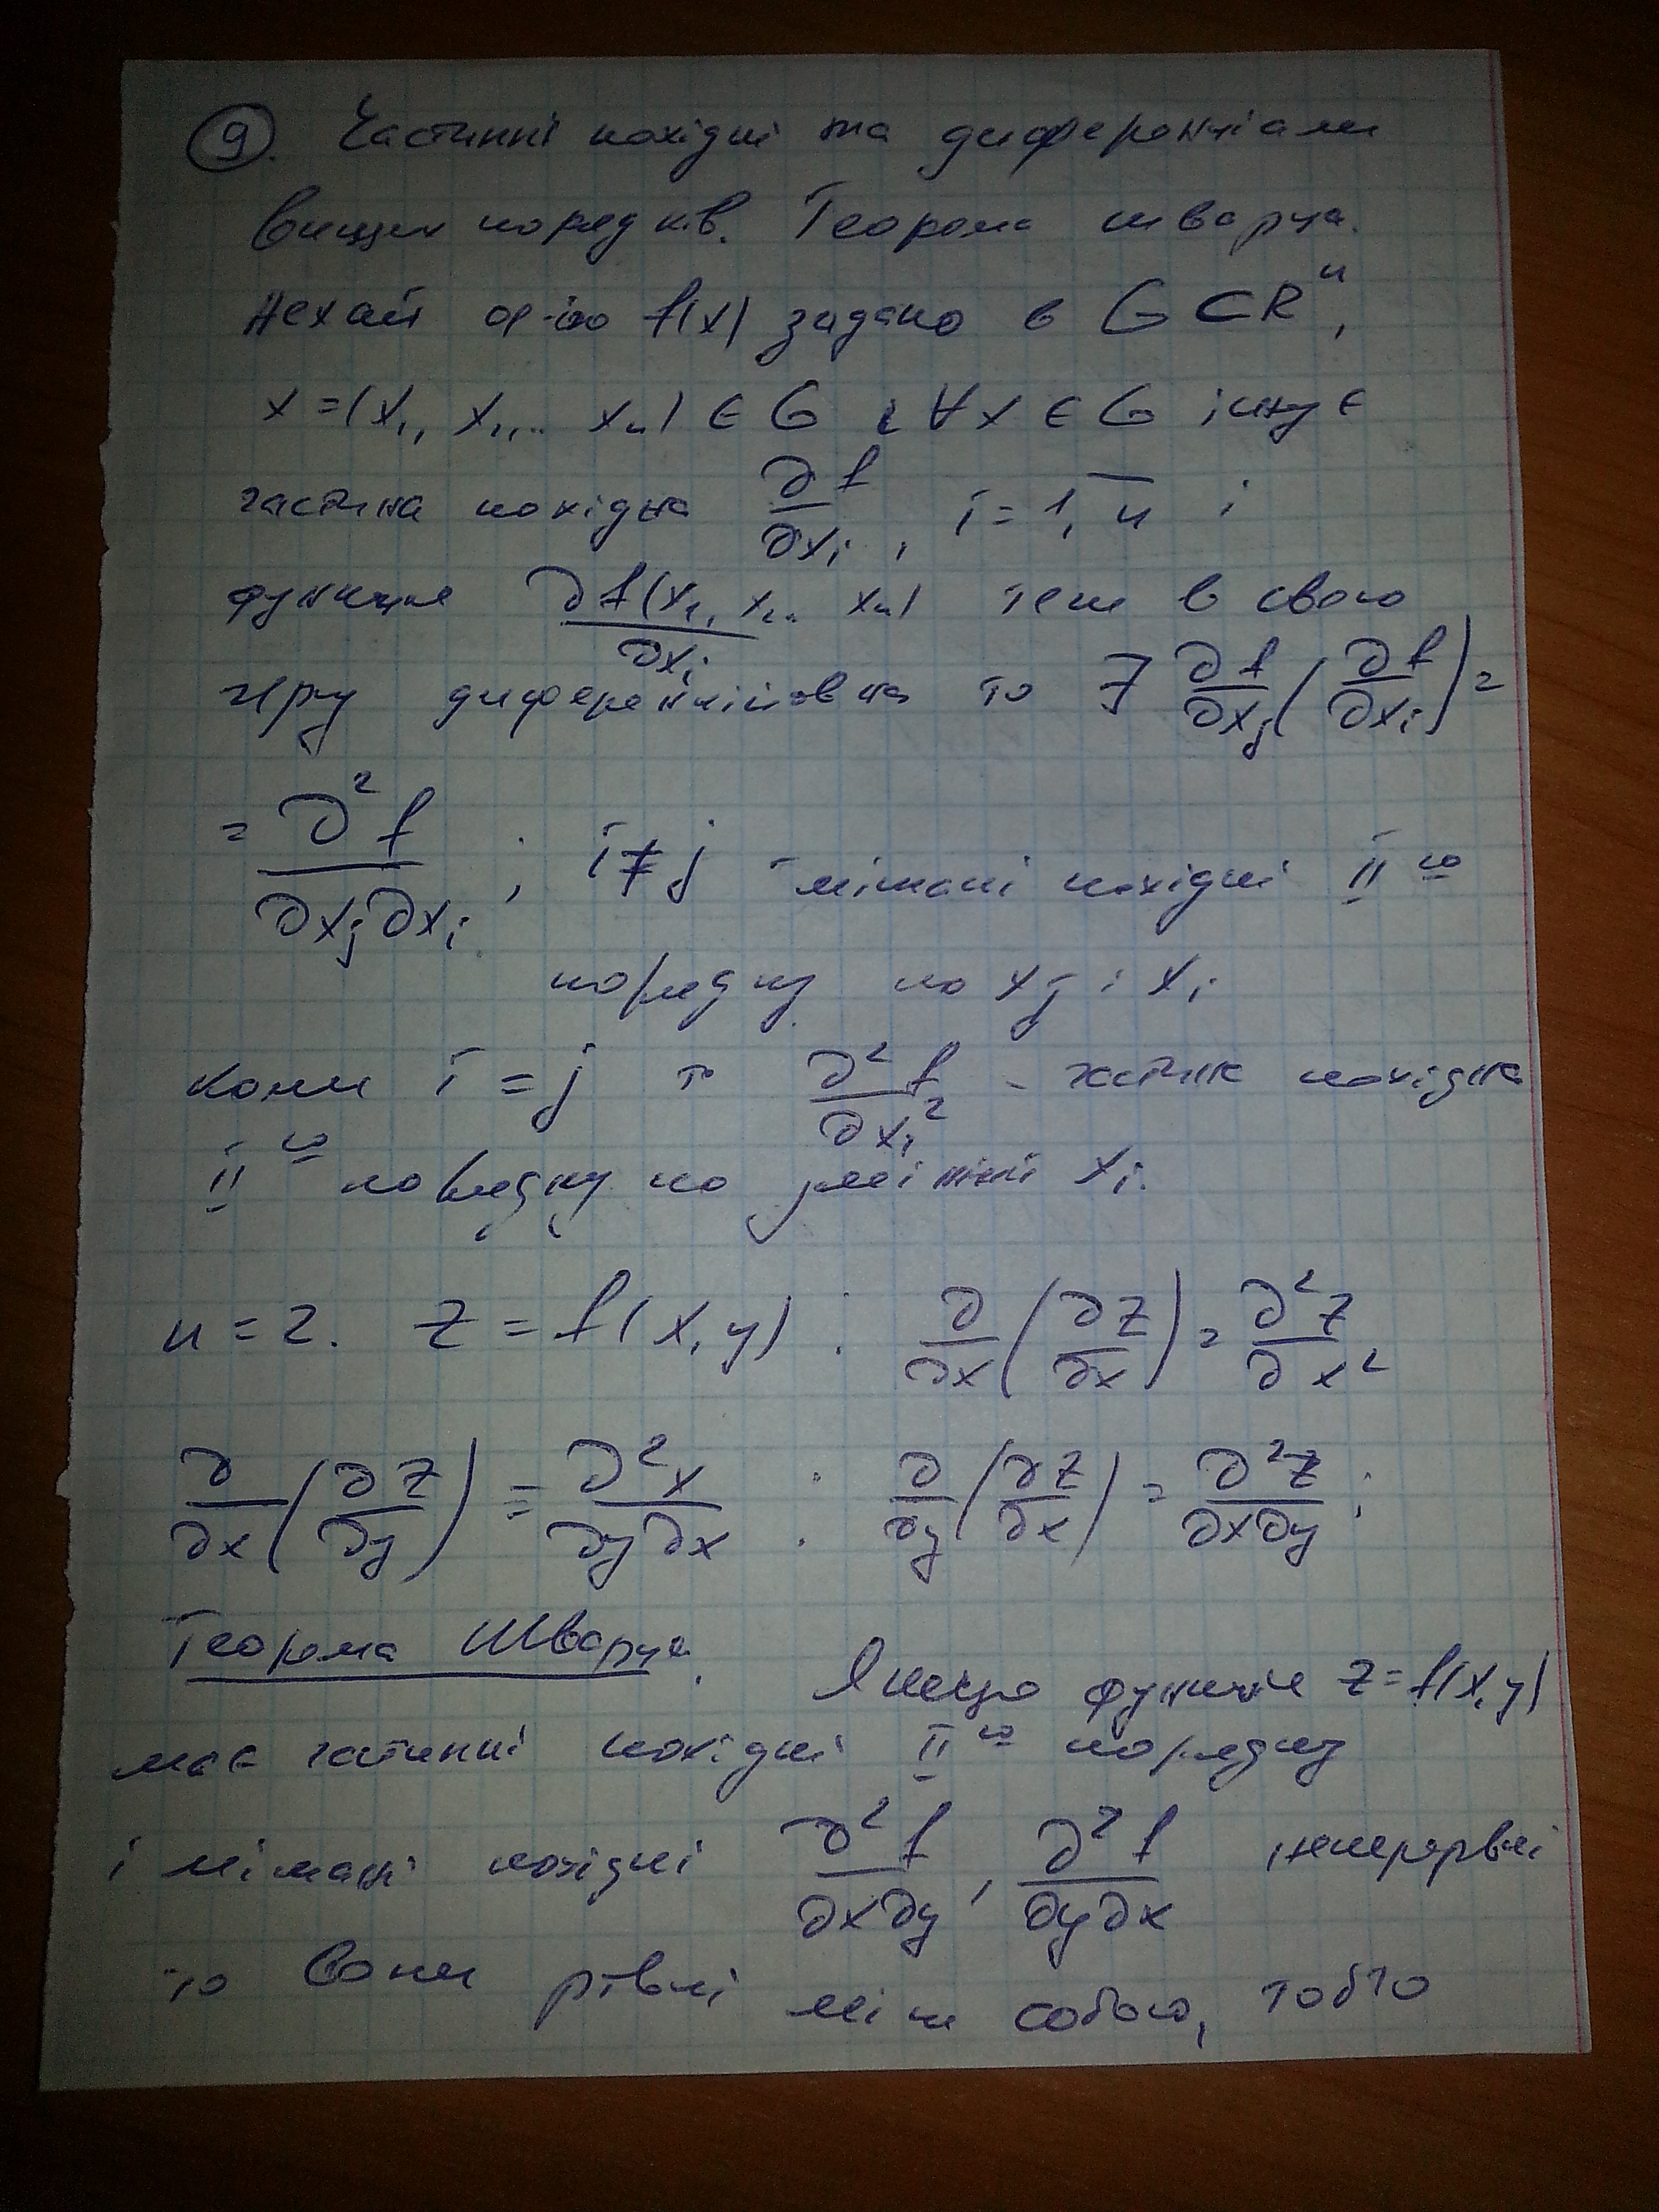 9. Частинні похідні та диференціали
вищих порядків. Теорема шварца.
Нехай ф-ію f(x) задано в G ⊂ Rⁿ,
x = (x₁, x₂,.. xₙ) ∈ G і ∀x ∈ G існує
частина похідна ∂f/∂xᵢ, i = 1, n̅ і
функція ∂f(x₁, x₂.. xₙ)/∂xᵢ теж в свою
чергу диференційовна то ∃ ∂f/∂xⱼ (∂f/∂xᵢ) =
= ∂²f/∂xⱼ∂xᵢ ; i ≠ j - мішані похідні II го
порядку по xⱼ і xᵢ
коли i = j то ∂²f/∂xᵢ² - частина похідна
II го порядку по змінній xᵢ.
n = 2. z = f(x, y) : ∂/∂x (∂z/∂x) = ∂²z/∂x²
∂/∂x (∂z/∂y) = ∂²x/∂y∂x ; ∂/∂y (∂z/∂x) = ∂²z/∂x∂y ;
Теорема Шварца. Якщо функція z = f(x, y)
має частинні похідні II го порядку
і мішані похідні ∂²f/∂x∂y, ∂²f/∂y∂x неперервні
то вони рівні між собою, тобто